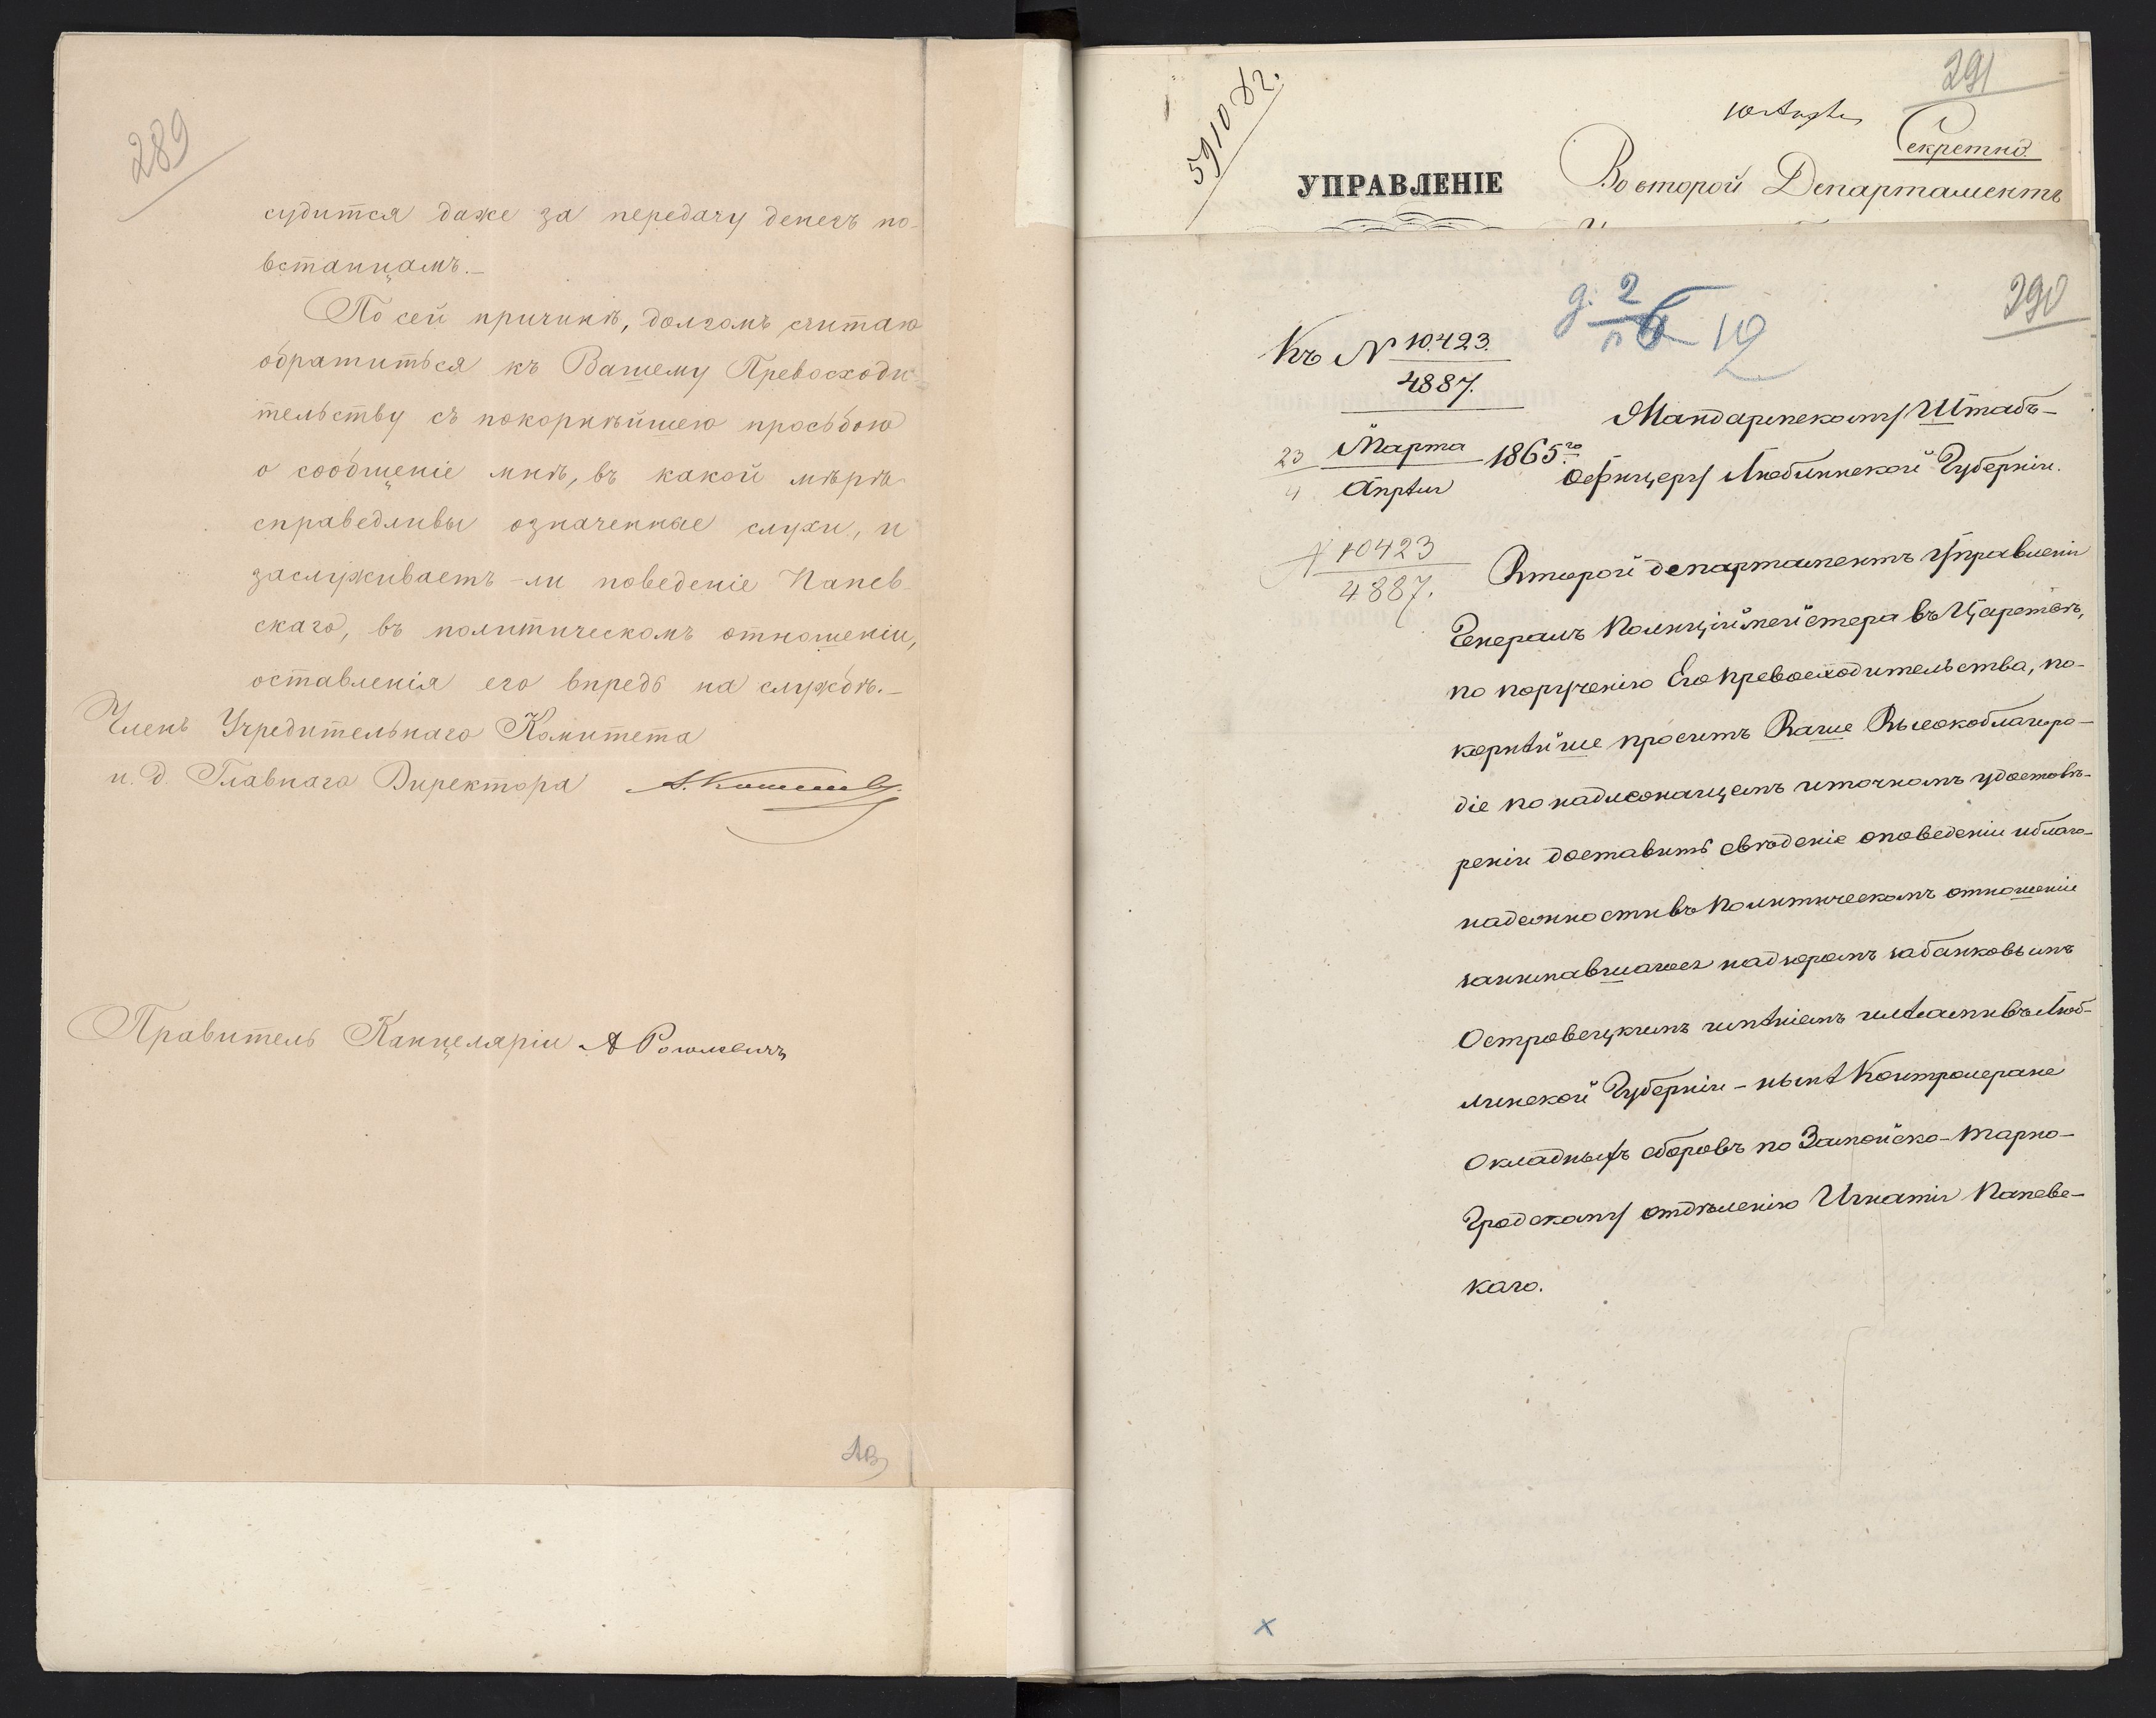 289
судится даже за передачу денегъ по-
встанцамъ.—
По сей причинѣ, долгомъ считаю
обратиться къ Вашему Превосходи-
тельству съ покорнѣйшею просьбою
о сообщеніе мнѣ, въ какой мѣрѣ
справедливы означенные слухи, и
заслуживаетъ-ли поведеніе Папев
скаго, въ политическомъ отношеніи,
оставленія его впредь на службѣ.—
Членъ Учредительнаго Комитета
и. д. Главнаго Директора
Правитель Канцеляріи А
5910
291
Секретно
УПРАВЛЕНІЕ
Во второй Департаментъ
290
д. 2
19
Къ № 10.423.
4887.
23 Марта
4 Апрѣля
1865го
Жандармскому Штабъ-
Офицеру Люблинской Губерніи.
№ 10423
4887.
Второй департаментъ Управленія
Генералъ Полиціймейстера въ Царствѣ,
по порученію Его Превосходительства, по-
корнѣйше проситъ Ваше Высокоблагоро-
діе по надлежащемъ и точномъ удостовѣ-
реніи доставить свѣденіе о поведеніи и благо-
надежности въ Политическомъ отношеніи
занимавшагося надзоромъ за банковымъ
Островецкимъ имѣніемъ и лѣсами въ Люб-
линской Губерніи – нынѣ Контролера не
Окладныхъ сборовъ по Замойско-Тарно-
Градскому отдѣленію Игнатія Папевс-
каго.